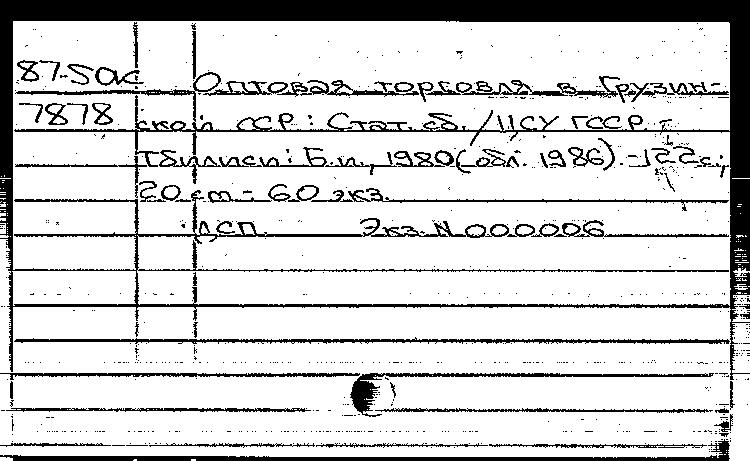 87-50с Оптовая торговля в Грузин-
7878 ской ССР: Стат. сб. / ЦСУ ГССР. -
Тбилиси: Б.и., 1980 (обл. 1986). - 122 с.;
20 cm - 60 экз.
ДСП. Экз. N 000006